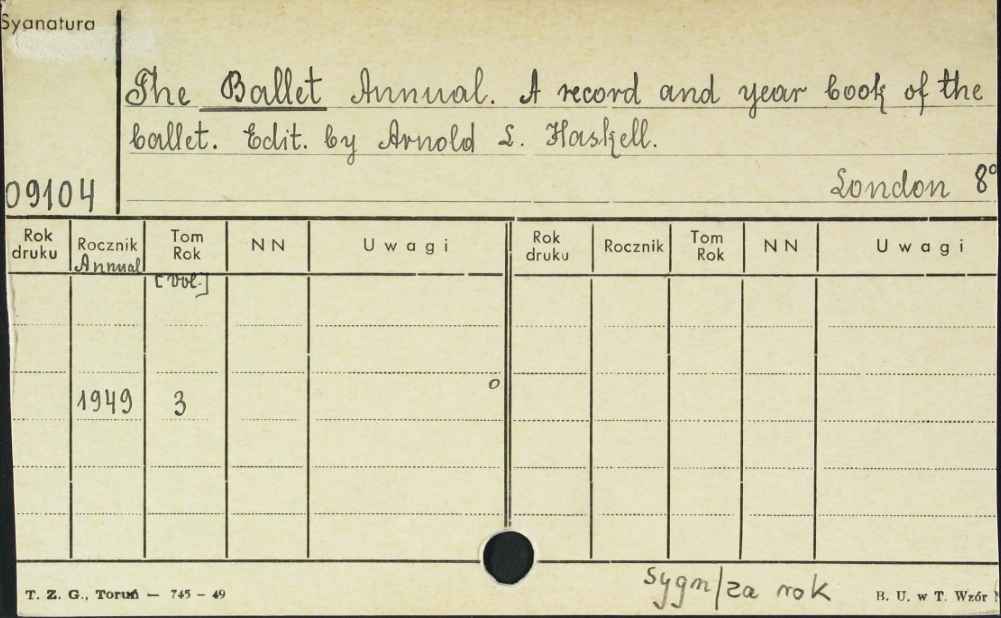 Sygnatura
The Ballet Annual. A record and year book of the
ballet. Edit. by Arnold L. Haskell.
09104
London 8°
Rok druku Rocznik Tom Rok NN Uwagi Rok druku Rocznik Tom Rok NN Uwagi
Annual
[vol.]
1949 3
sygn/za rok
T. Z. G., Toruń — 745 – 49
B. U. w T. Wzór